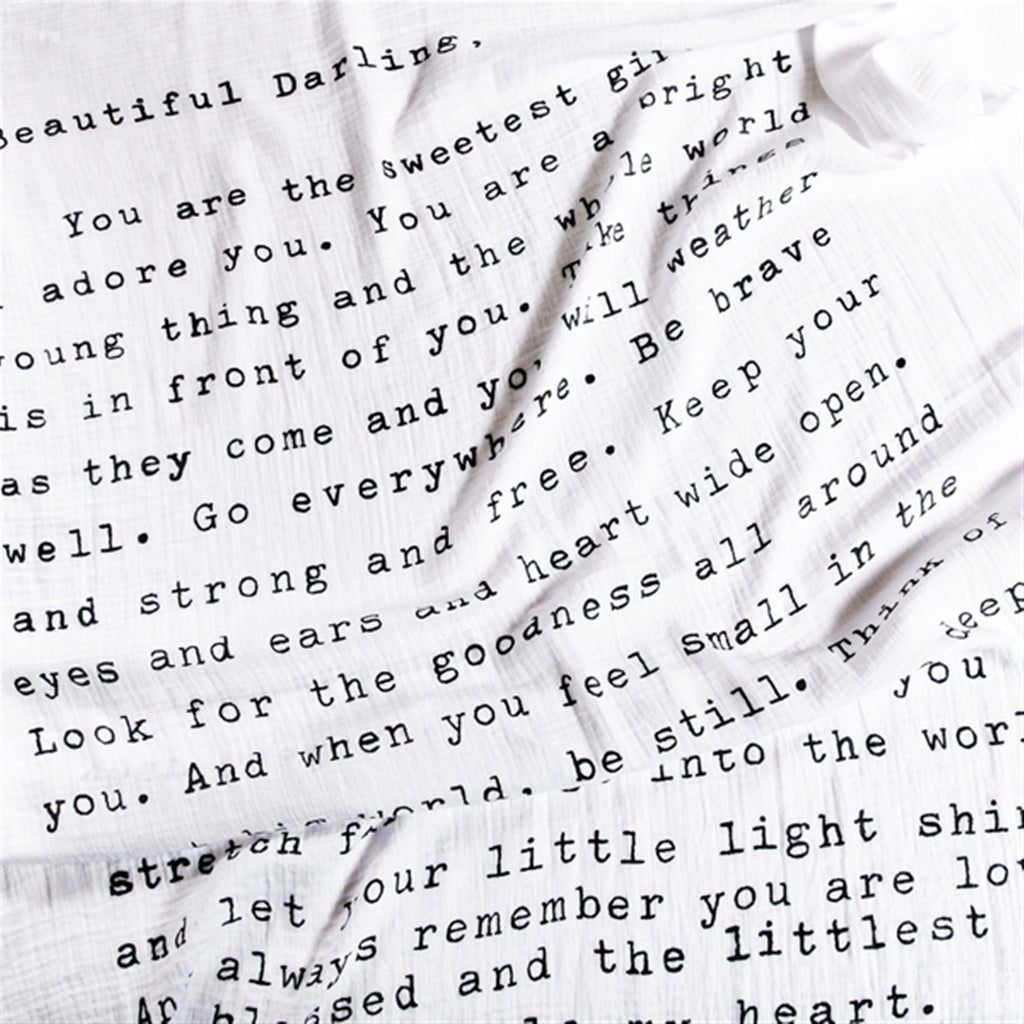 Beautiful Darling,
You are the sweetest
adore you. You are a bright
young thing and the whole world
is in front of you. Take
as they come and you will weather
well. Go everywhere. Be brave
and strong and free. Keep your
eyes and ears and heart wide open.
Look for the goodness all around
you. And when you feel small in the
be still. Think of
stretch you deep
into the
and let your little light
always remember you are
and the littlest
heart.